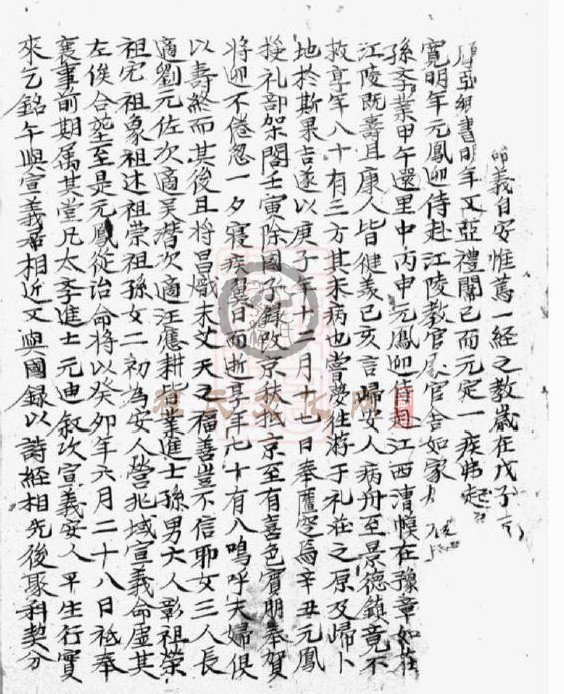 命義自安惟篤一經之教歲在戊子言
摩亞繼書明年又亞禮闈已而元定一疾弗起
寬明年元鳳迎侍赴江陵教官處官舍如家
孫季業甲午還里中丙申元鳳迎侍赴江西漕幙在豫章如在
江陵既壽且康人皆健羨己亥言歸安人病舟至景德鎮竟不
救享年八十有三方其未病也嘗夢往游于礼莊之原及歸卜
地於斯果吉遂以庚子年十二月十七日奉匶窆焉辛丑元鳳
授礼部架閣壬寅除國子錄改京秩抵京至有喜色賓朋奉賀
將迎不倦忽一夕寢疾翼日而逝享年九十有八嗚呼夫婦俱
以壽終而其後且將昌熾未艾天之福善豈不信耶女三人長
適劉元佐次適吴潛次適汪應耕皆業進士孫男六人彰祖榮
祖宏祖象祖述祖荣祖孫女二初為安人營兆域宣義命虛其
左俟合塟至是元鳳從治命將以癸卯年六月二十八日祗奉
襄事前期属其堂兄太孝進士元迪叙次宣義安人平生行實
來乞銘午與宣義居相近又與國録以詩經相先後聚科契分